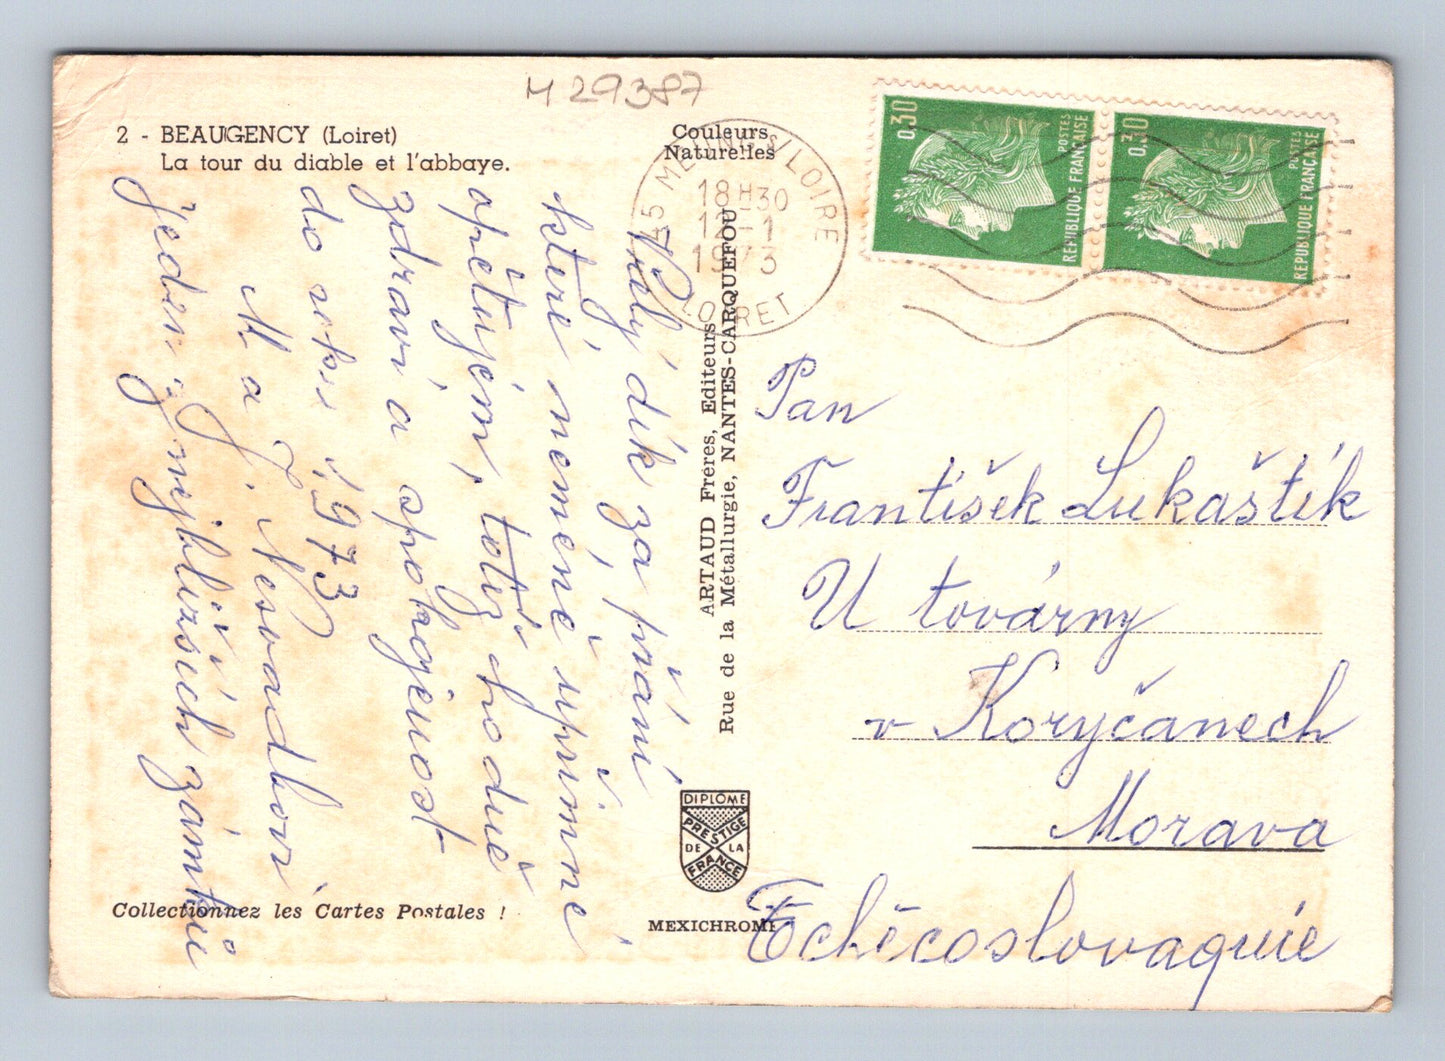 H 29387
2 - BEAUGENCY (Loiret)
La tour du diable et l'abbaye.
Couleurs
Naturelles
45 MEUNG S/LOIRE
18H30
12-1
1973
LOIRET
0,30
POSTES
REPUBLIQUE FRANÇAISE
0,30
POSTES
REPUBLIQUE FRANÇAISE
Vřalý dík za přání
které neméně upřímně
opětujem, totiž hodně
zdraví a spokojenost
do roku 1973
M a J. Nesvadbovi
jeden z nejbližších zámků
ARTAUD Fréres, Editeurs
Rue de la Métallurgie, NANTES-CARQUEFOU
Pan
František Lukaštík
U továrny
v Koryčanech
Morava
Tchécoslovaquie
DIPLÔME
PRESTIGE
DE LA
FRANCE
MEXICHROME
Collectionnez les Cartes Postales !